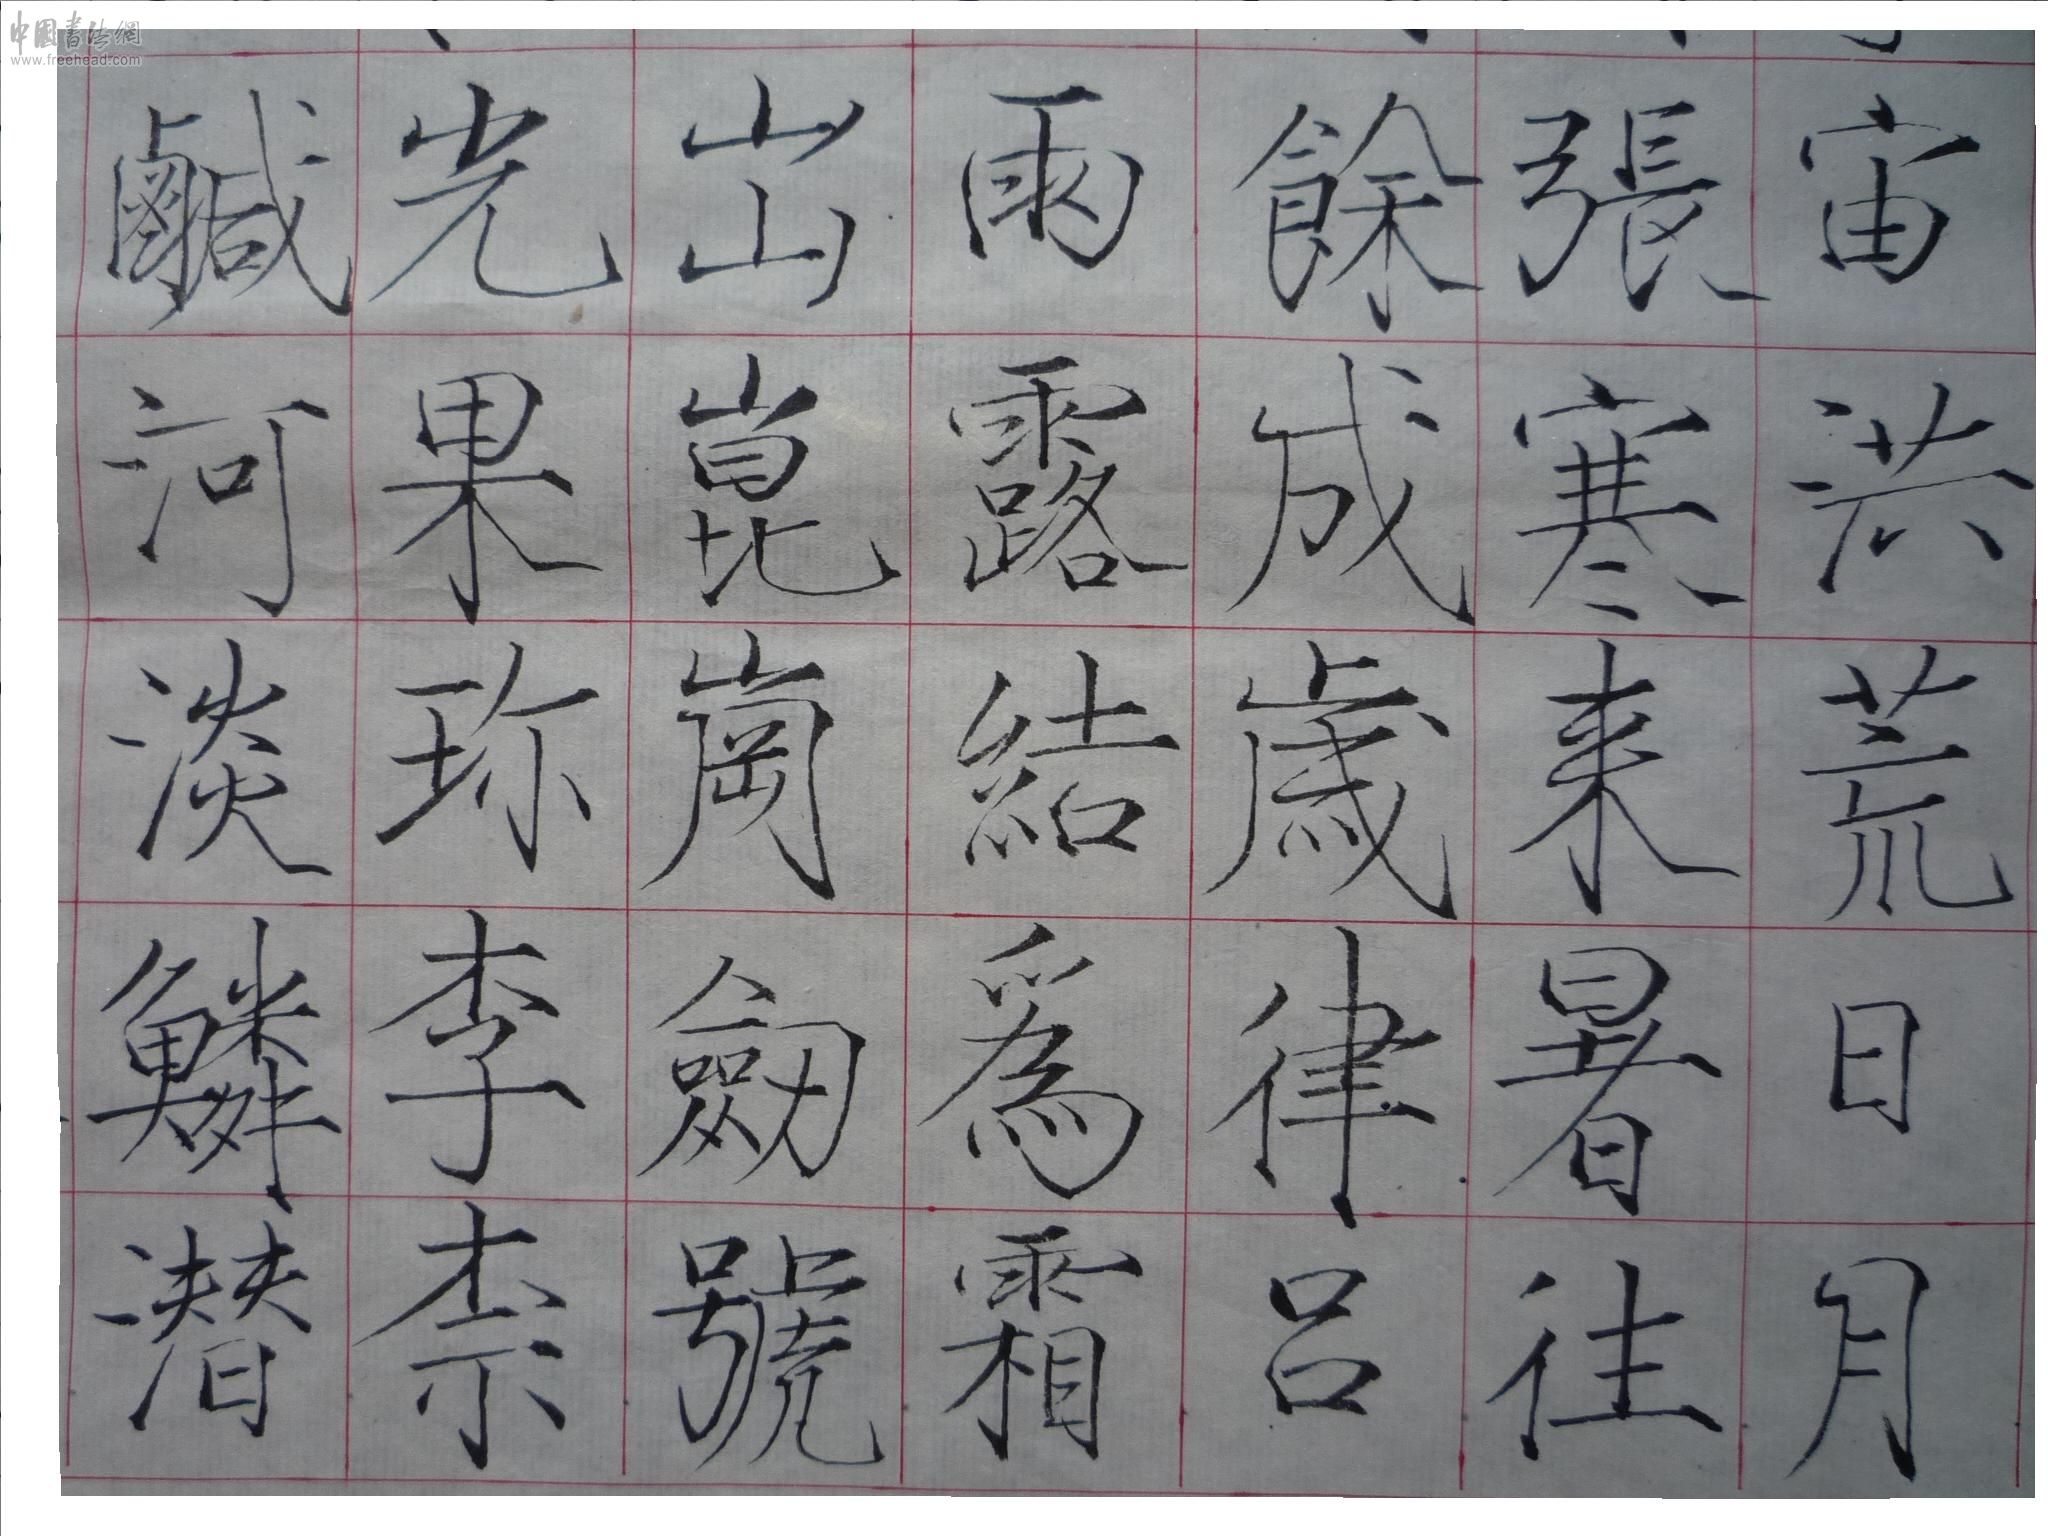 中国書法網
www.freehead.com
宙洪荒日月
張寒来暑往
餘成歲律吕
雨露結為霜
出崑崗劒號
光果珎李柰
鹹河淡鱗潛